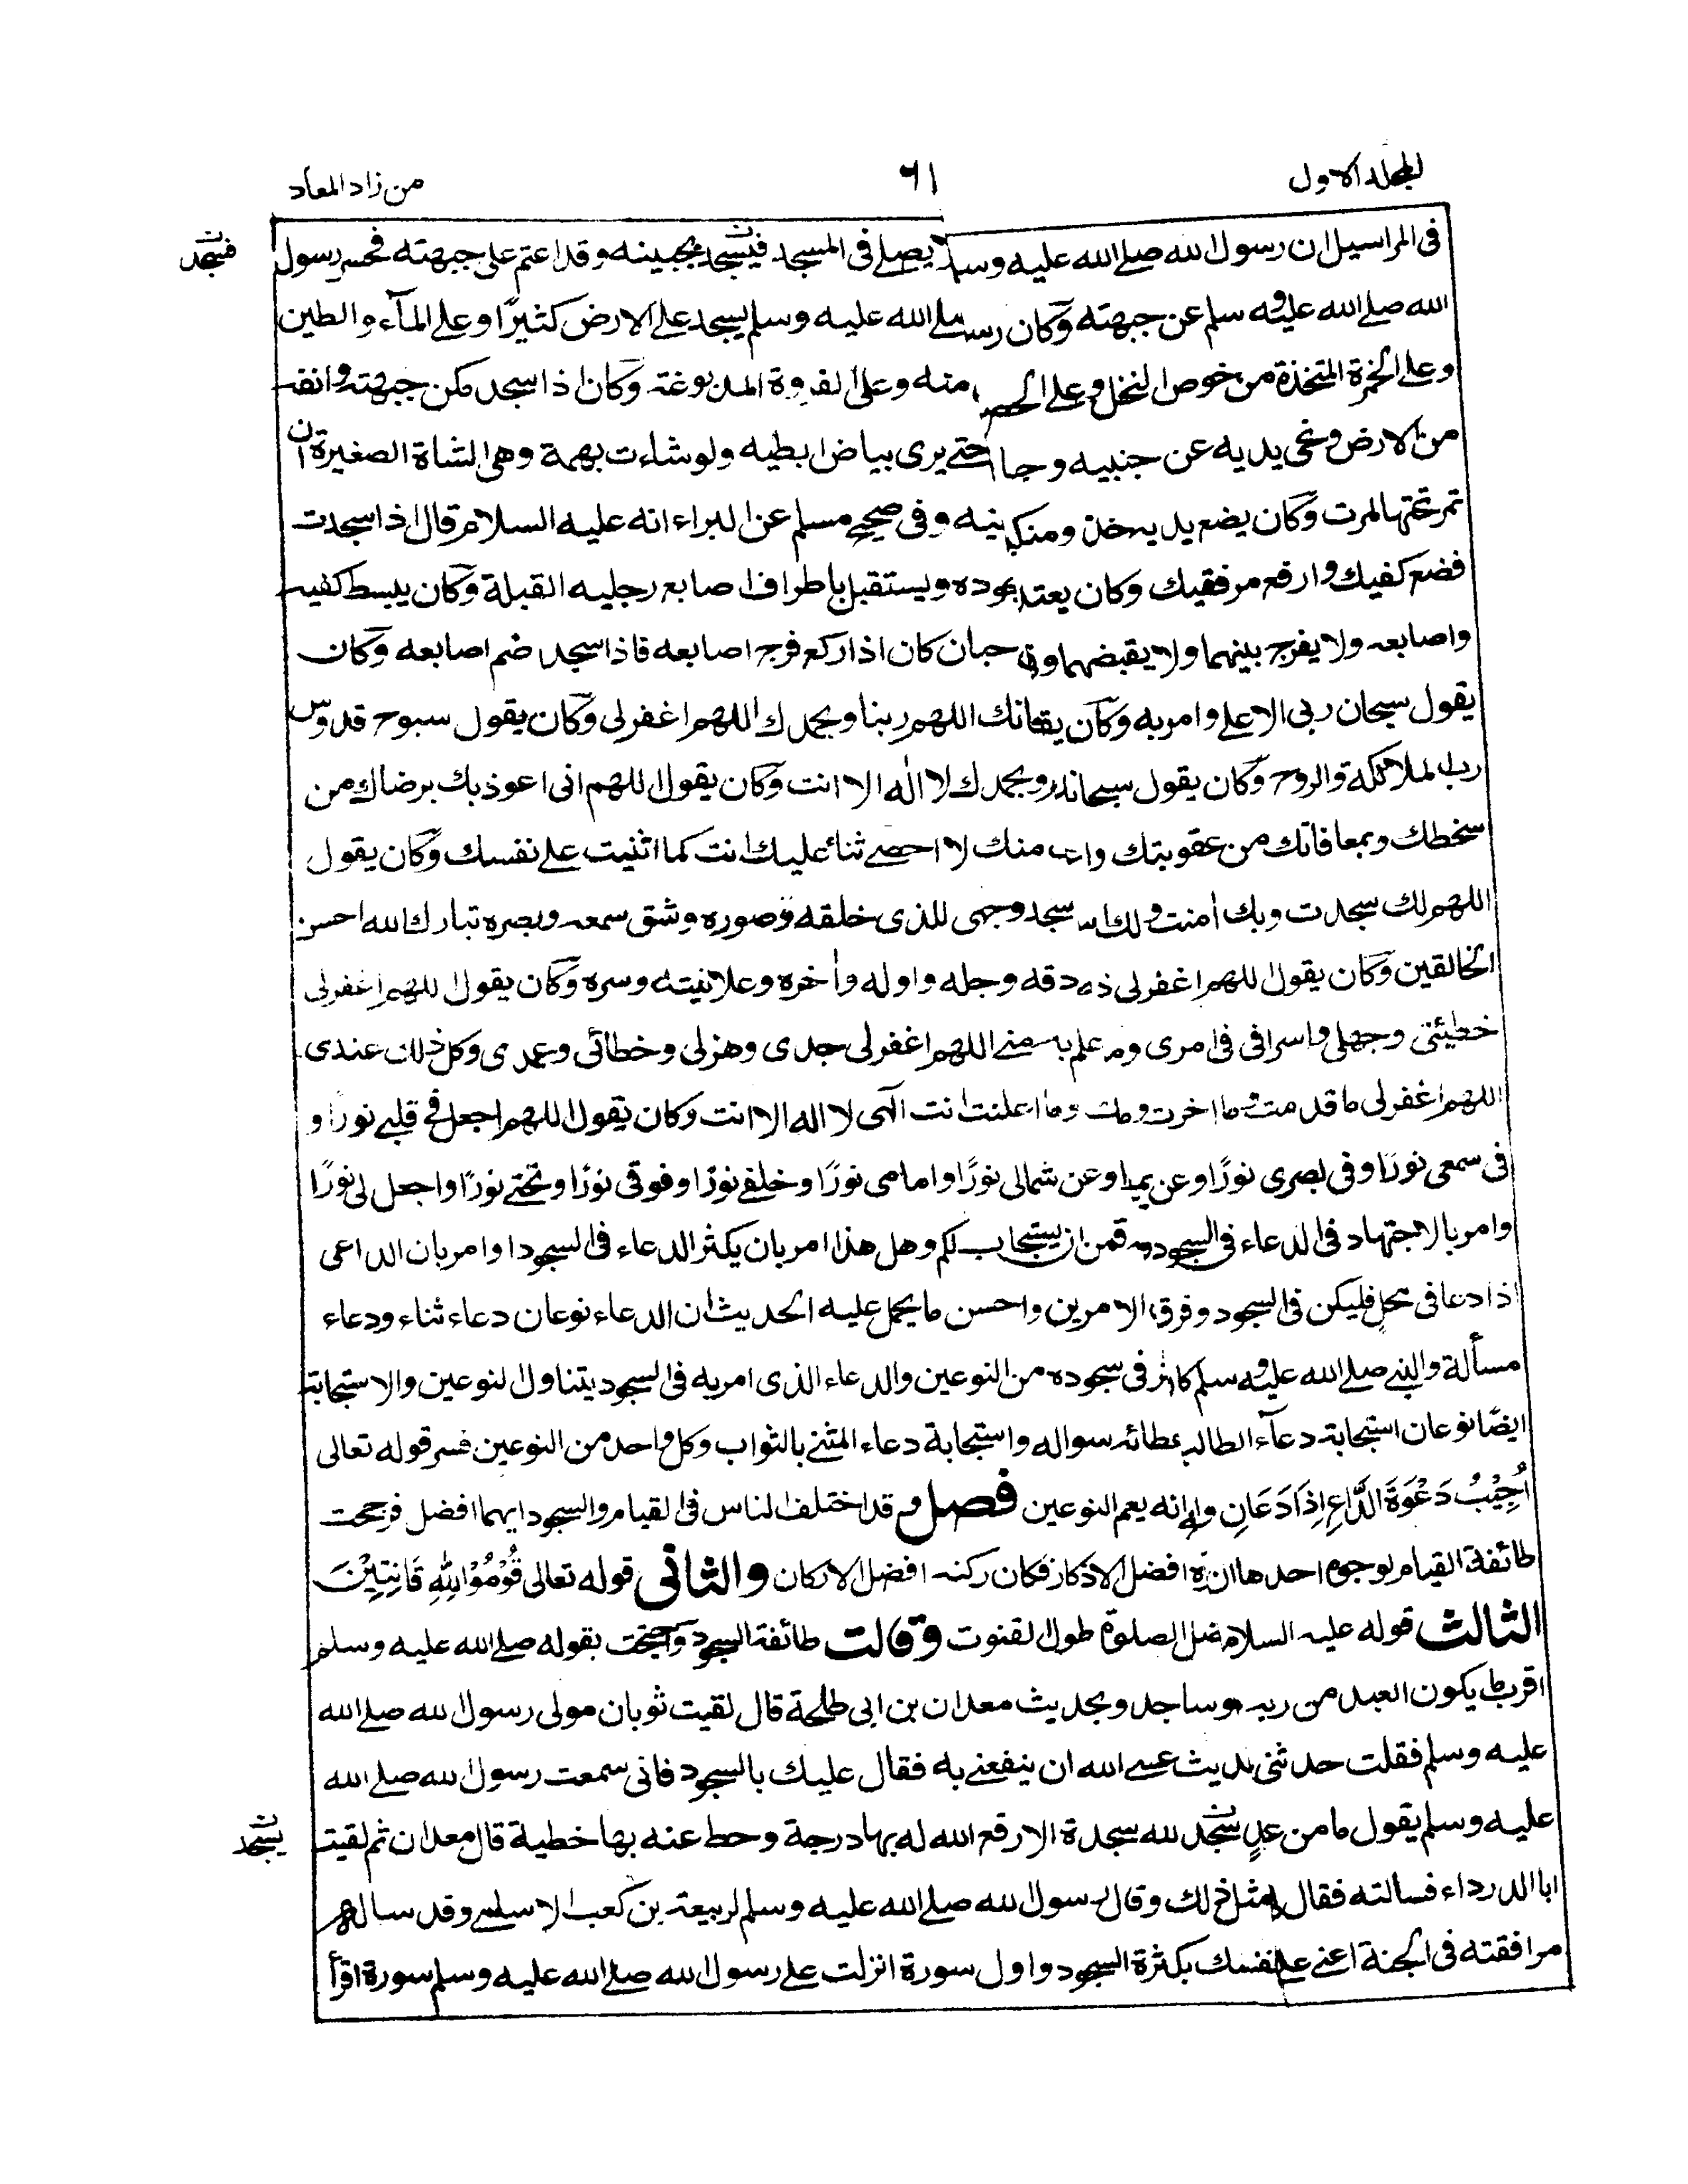 المجلد الاول
٦١
من زاد المعاد
فى المراسيل ان رسول الله صلى الله عليه وسلم يصلى فى المسجد فيسجد بجبينه وقد اعتم على جبهته فحسر رسول
فسجد
الله صلى الله عليه وسلم عن جبهته وكان رسول الله صلى الله عليه وسلم يسجد على الارض كثيرًا وعلى المآء والطين
وعلى الخمرة المتخذة من خوص النخل وعلى الحصير منه وعلى الفروة المدبوغة وكان اذا سجد مكن جبهته وانفه
من الارض ونحى يديه عن جنبيه وجا حتى يرى بياض ابطيه ولو شاءت بهمة وهى الشاة الصغيرة ان
تمر تحتها لمرت وكان يضع يديه حذو منكبيه وفى صحيح مسلم عن البراء انه عليه السلام قال اذا سجدت
فضع كفيك وارفع مرفقيك وكان يعتد سجوده ويستقبل باطراف اصابع رجليه القبلة وكان يبسط كفيه
واصابعه ولا يفرج بينهما ولا يقبضهما وفى حبان كان اذا ركع فرج اصابعه فاذا سجد ضم اصابعه وكان
يقول سبحان ربى الاعلى وامر به وكان يقول سبحانك اللهم ربنا وبحمدك اللهم اغفر لى وكان يقول سبوح قدوس
رب الملائكة والروح وكان يقول سبحانك وبحمدك لا اله الا انت وكان يقول اللهم انى اعوذ بك برضاك من
سخطك وبمعافاتك من عقوبتك واعوذ منك لا احصى ثناء عليك انت كما اثنيت على نفسك وكان يقول
اللهم لك سجدت وبك امنت ولك اسلمت سجد وجهى للذى خلقه وصوره وشق سمعه وبصره تبارك الله احسن
الخالقين وكان يقول اللهم اغفر لى ذنبى دقه وجله واوله واخره وعلانيته وسره وكان يقول اللهم اغفر لى
خطيئتى وجهلى واسرافى فى امرى وما اعلم به منى اللهم اغفر لى جدى وهزلى وخطائى وعمدى وكل ذلك عندى
اللهم اغفر لى ما قدمت وما اخرت وما وما اعلنت انت الهى لا اله الا انت وكان يقول اللهم اجعل فى قلبى نورًا و
فى سمعى نورًا وفى بصرى نورًا وعن يمينى وعن شمالى نورًا وامامى نورًا وخلفى نورًا وفوقى نورًا وتحتى نورًا واجعل لى نورًا
وامر بالاجتهاد فى الدعاء فى السجود قمن ان يستجاب لكم وهل هذا امر بان يكثر الدعاء فى السجود او امر بان الداعى
اذا دعا فى محل فليكن فى السجود وفرق الامرين واحسن ما يحمل عليه الحديث ان الدعاء نوعان دعاء ثناء ودعاء
مسألة والنبى صلى الله عليه وسلم كان فى سجوده من النوعين والدعاء الذى امر به فى السجود يتناول النوعين والاستجابة
ايضًا نوعان استجابة دعآء الطالب بعطائه سواله واستجابة دعاء المثنى بالثواب وكل واحد من النوعين فسر قوله تعالى
اُجِيْبُ دَعْوَةَ الدَّاعِ اِذَا دَعَانِ وانه يعم النوعين فصل وقد اختلف الناس فى القيام والسجود ايهما افضل فرجحت
طائفة القيام لوجوه احدها ان ذكره افضل الاذكار فكان ركنه افضل الاركان والثانى قوله تعالى قُوْمُوْا لِلّٰهِ قَانِتِيْنَ
الثالث قوله عليه السلام افضل الصلوة طول القنوت وقالت طائفة السجود واحتجت بقوله صلى الله عليه وسلم
اقرب ما يكون العبد من ربه وهو ساجد وبحديث معدان بن ابى طلحة قال لقيت ثوبان مولى رسول الله صلى الله
عليه وسلم فقلت حدثنى بحديث عسى الله ان ينفعنى به فقال عليك بالسجود فانى سمعت رسول الله صلى الله
عليه وسلم يقول ما من عبد يسجد لله سجدة الا رفع الله له بها درجة وحط عنه بها خطية قال معدان ثم لقيت
يسجد
ابا الدرداء فسالته فقال لى مثل ذلك وقال رسول الله صلى الله عليه وسلم لربيعة بن كعب الاسلمى وقد ساله
مرافقته فى الجنة اعنى على نفسك بكثرة السجود واول سورة انزلت على رسول الله صلى الله عليه وسلم سورة اقرأ